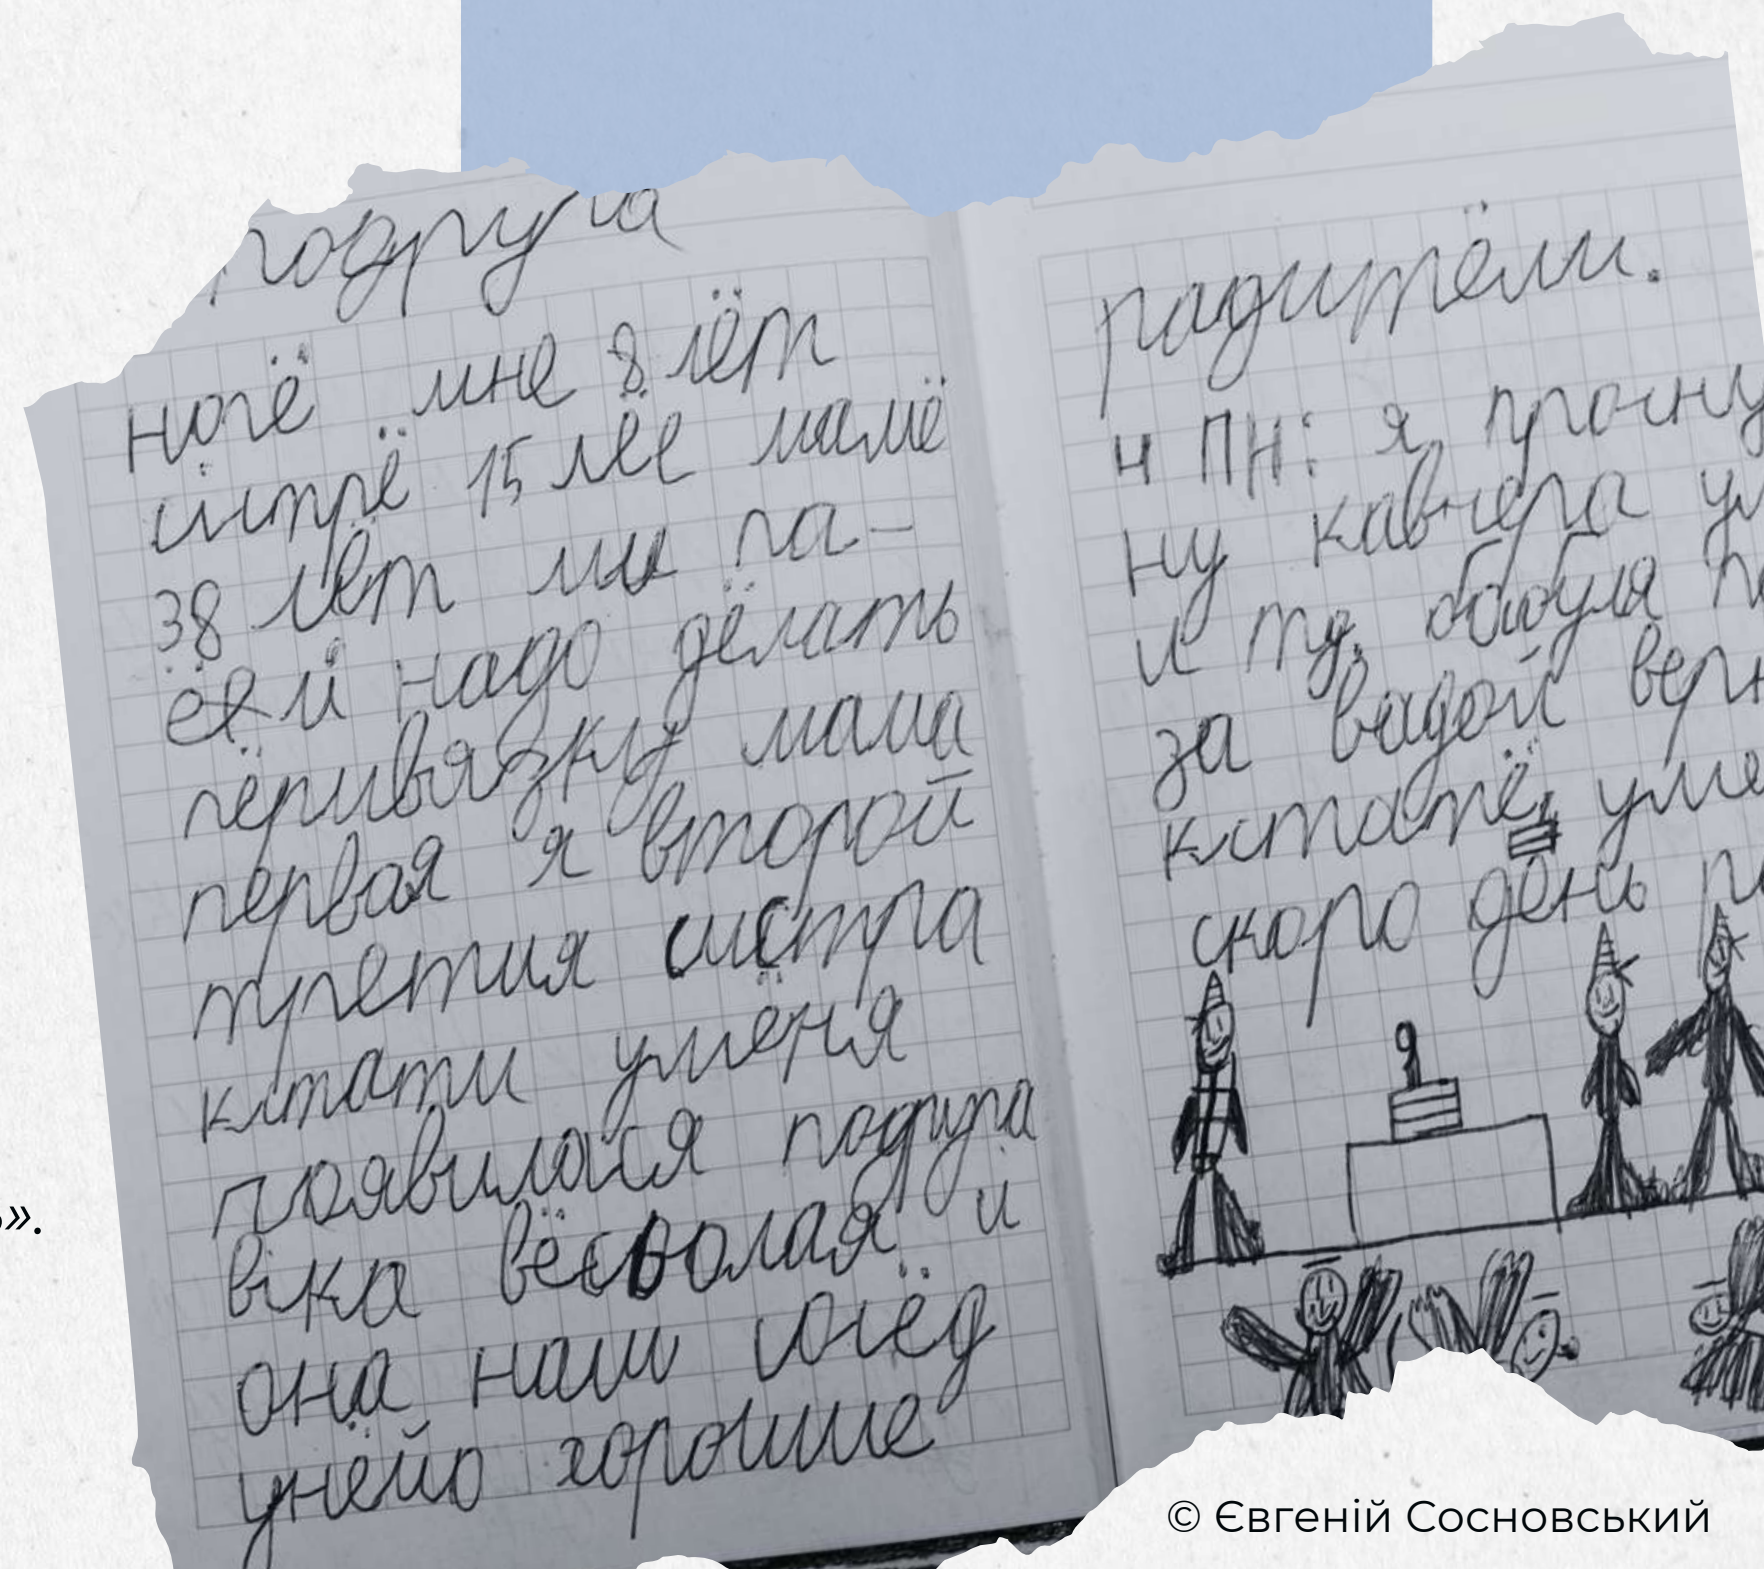 подруга
ногё мне 8 лёт
систрё 15 лёе мамё
38 лёт ми па-
ёей надо дёлать
пёривязку мама
первая я второй
третия систра
кстати умёня
появилася подруга
віка вёсволая и
она наш сосёд
унёйо хорошие
радитёли.
Ч ПН: я прочну
ну кавчера ум
и ту, бабуля по
за вадой верн
кстатё, уме
скоро дёнь
9
ь».
© Євгеній Сосновський